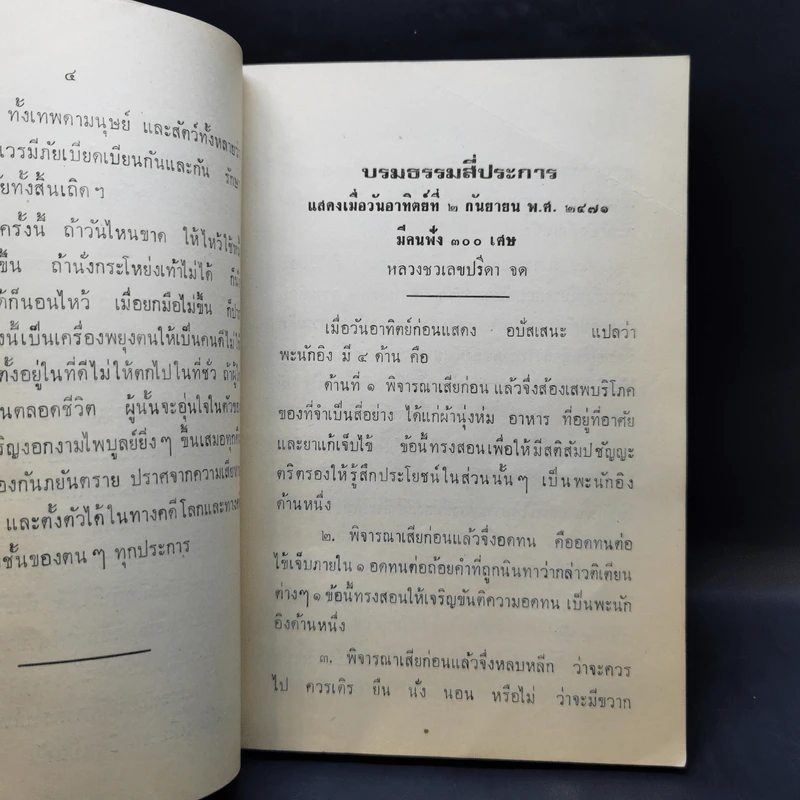 ๔
ทั้งเทพดามนุษย์ และสัตว์ทั้งหลาย
เวรมีภัยเบียดเบียนกันและกัน รักษา
ทั้งสิ้นเถิดฯ
ครั้งนี้ ถ้าวันไหนขาด ให้ไหว้ใช้
ขึ้น ถ้านั่งกระโหย่งเท้าไม่ได้ ก็
ก็นอนไหว้ เมื่อยกมือไม่ขึ้น
นี้เป็นเครื่องพยุงตนให้เป็นคนดีไม่
ตั้งอยู่ในที่ดีไม่ให้ตกไปในที่ชั่ว
ตลอดชีวิต ผู้นั้นจะอุ่นใจในตัวของ
เจริญงอกงามไพบูลย์ยิ่งๆ ขึ้นเสมอทุก
ป้องกันภยันตราย ปราศจากความเสี่ยง
และตั้งตัวได้ในทางคดีโลกและทาง
ชั้นของตนๆ ทุกประการ
บรมธรรมสี่ประการ
แสดงเมื่อวันอาทิตย์ที่ ๒ กันยายน พ.ศ. ๒๔๗๑
มีคนฟัง ๓๐๐ เศษ
หลวงชวเลขปรีดา จด
เมื่อวันอาทิตย์ก่อนแสดง อปัสเสนะ แปลว่า
พะนักอิง มี ๔ ด้าน คือ
ด้านที่ ๑ พิจารณาเสียก่อน แล้วจึ่งส้องเสพบริโภค
ของที่จำเป็นสี่อย่าง ได้แก่ผ้านุ่งห่ม อาหาร ที่อยู่ที่อาศัย
และยาแก้เจ็บไข้ ข้อนี้ทรงสอนเพื่อให้มีสติสัมปชัญญะ
ตริตรองให้รู้สึกประโยชน์ในส่วนนั้นๆ เป็นพะนักอิง
ด้านหนึ่ง
๒. พิจารณาเสียก่อนแล้วจึ่งอดทน คืออดทนต่อ
ไข้เจ็บภายใน ๑ อดทนต่อถ้อยคำที่ถูกนินทาว่ากล่าวติเตียน
ต่างๆ ๑ ข้อนี้ทรงสอนให้เจริญขันติความอดทน เป็นพะนัก
อิงด้านหนึ่ง
๓. พิจารณาเสียก่อนแล้วจึ่งหลบหลีก ว่าจะควร
ไป ควรเดิร ยืน นั่ง นอน หรือไม่ ว่าจะมีขวาก